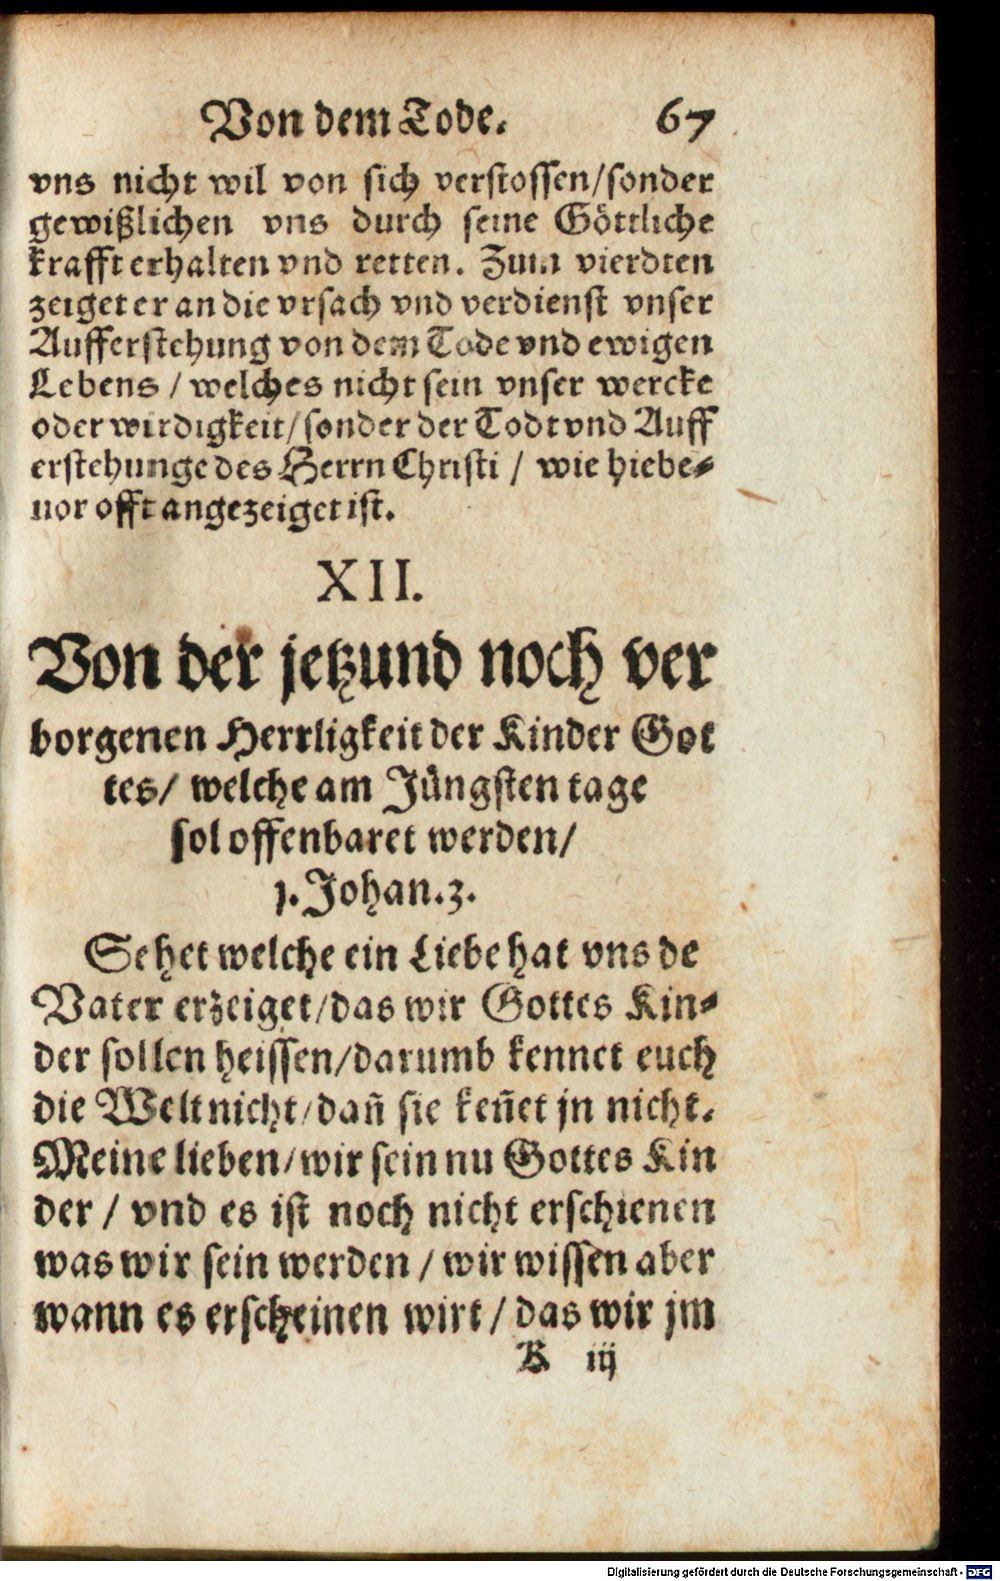 Von dem Tode. 67
vns nicht wil von sich verstossen/sonder
gewißlichen vns durch seine Göttliche
krafft erhalten vnd retten. Zum vierdten
zeiget er an die vrsach vnd verdienst vnser
Aufferstehung von dem Tode vnd ewigen
Lebens / welches nicht sein vnser wercke
oder wirdigkeit/sonder der Todt vnd Auff
erstehunge des Herrn Christi / wie hiebe-
uor offt angezeiget ist.
XII.
Von der jetzund noch ver
borgenen Herrligkeit der Kinder Got
tes/ welche am Jüngsten tage
sol offenbaret werden/
1. Johan. 3.
Sehet welche ein Liebe hat vns de
Vater erzeiget/das wir Gottes Kin-
der sollen heissen/darumb kennet euch
die Welt nicht/dañ sie keñet jn nicht.
Meine lieben/wir sein nu Gottes Kin
der / vnd es ist noch nicht erschienen
was wir sein werden / wir wissen aber
wann es erscheinen wirt / das wir jm
K iij
Digitalisierung gefördert durch die Deutsche Forschungsgemeinschaft - DFG